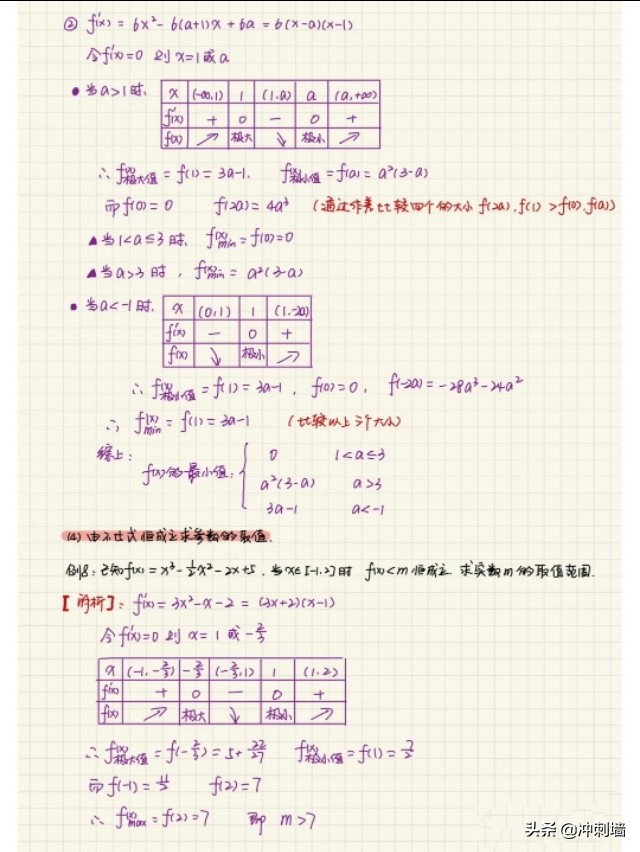 ② f'(x) = 6x² - 6(a+1)x + 6a = 6(x-a)(x-1)
令f'(x)=0 则 x=1或a
• 当a>1时, x (-∞,1) 1 (1,a) a (a,+∞)
f'(x) + 0 - 0 +
f(x) ↗ 极大 ↘ 极小 ↗
∴ f(x)极大值 = f(1) = 3a-1, f(x)极小值 = f(a) = a²(3-a)
而f(0)=0 f(2a)=4a³ (通过作差比较四个的大小 f(2a),f(1) > f(0),f(a))
▲当1<a≤3时, f(x)min = f(0)=0
▲当a>3时, f(x)min = a²(3-a)
• 当a<-1时, x (0,1) 1 (1,-2a)
f'(x) - 0 +
f(x) ↘ 极小 ↗
∴ f(x)极小值 = f(1) = 3a-1, f(0)=0, f(-2a) = -28a³-24a²
∴ f(x)min = f(1) = 3a-1 (比较以上三个大小)
综上:
f(x)的最小值: { 0 1<a≤3
a²(3-a) a>3
3a-1 a<-1
(4) 由不等式恒成立求参数的取值.
例8: 已知f(x) = x³-½x²-2x+5, 当x∈[-1,2]时 f(x)<m 恒成立 求实数m的取值范围.
[解析]: f'(x) = 3x²-x-2 = (3x+2)(x-1)
令f'(x)=0 则 x=1 或 -2/3
x (-1,-2/3) -2/3 (-2/3,1) 1 (1,2)
f'(x) + 0 - 0 +
f(x) ↗ 极大 ↘ 极小 ↗
∴ f(x)极大值 = f(-2/3) = 5+22/27 f(x)极小值 = f(1) = 7/2
而f(-1) = 11/2 f(2)=7
∴ f(x)max = f(2) = 7 即 m>7
头条 @冲刺墙